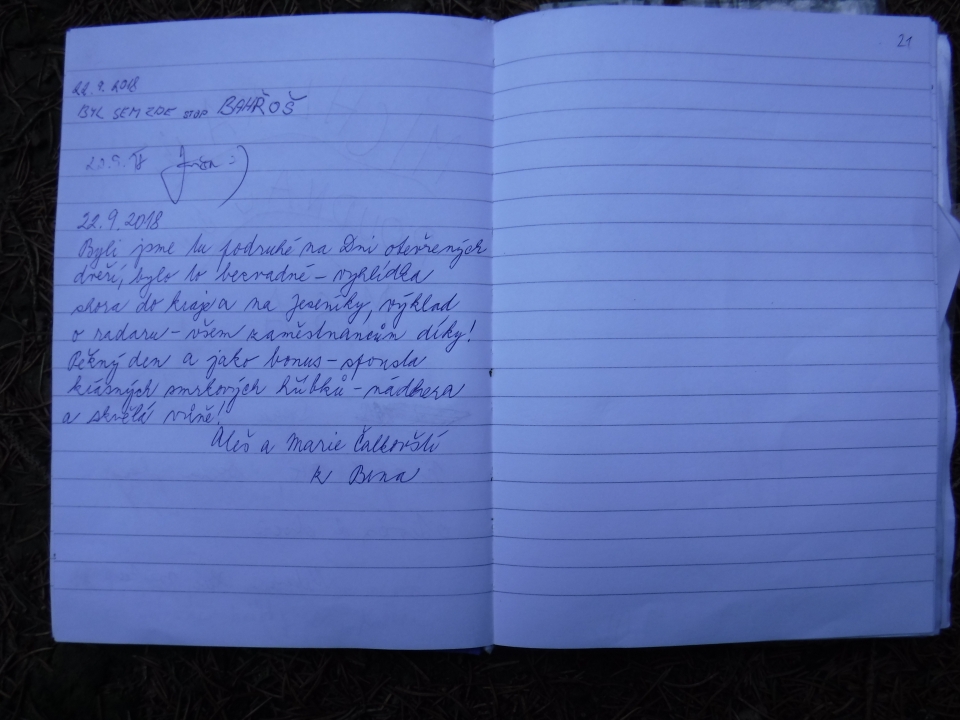 21
22.9.2018
BYL SEM ZDE STOP BAHŘOŠ
22.9.2018
Byli jsme tu podruhé na Dni otevřených
dveří, bylo to bezvadné – vyhlídka
shora do kraje a na Jeseníky, výklad
o radaru – všem zaměstnancům díky!
Pěkný den a jako bonus – spousta
krásných smrkových hříbků – nádhera
a skvělá vůně!
Aleš a Marie
z Brna